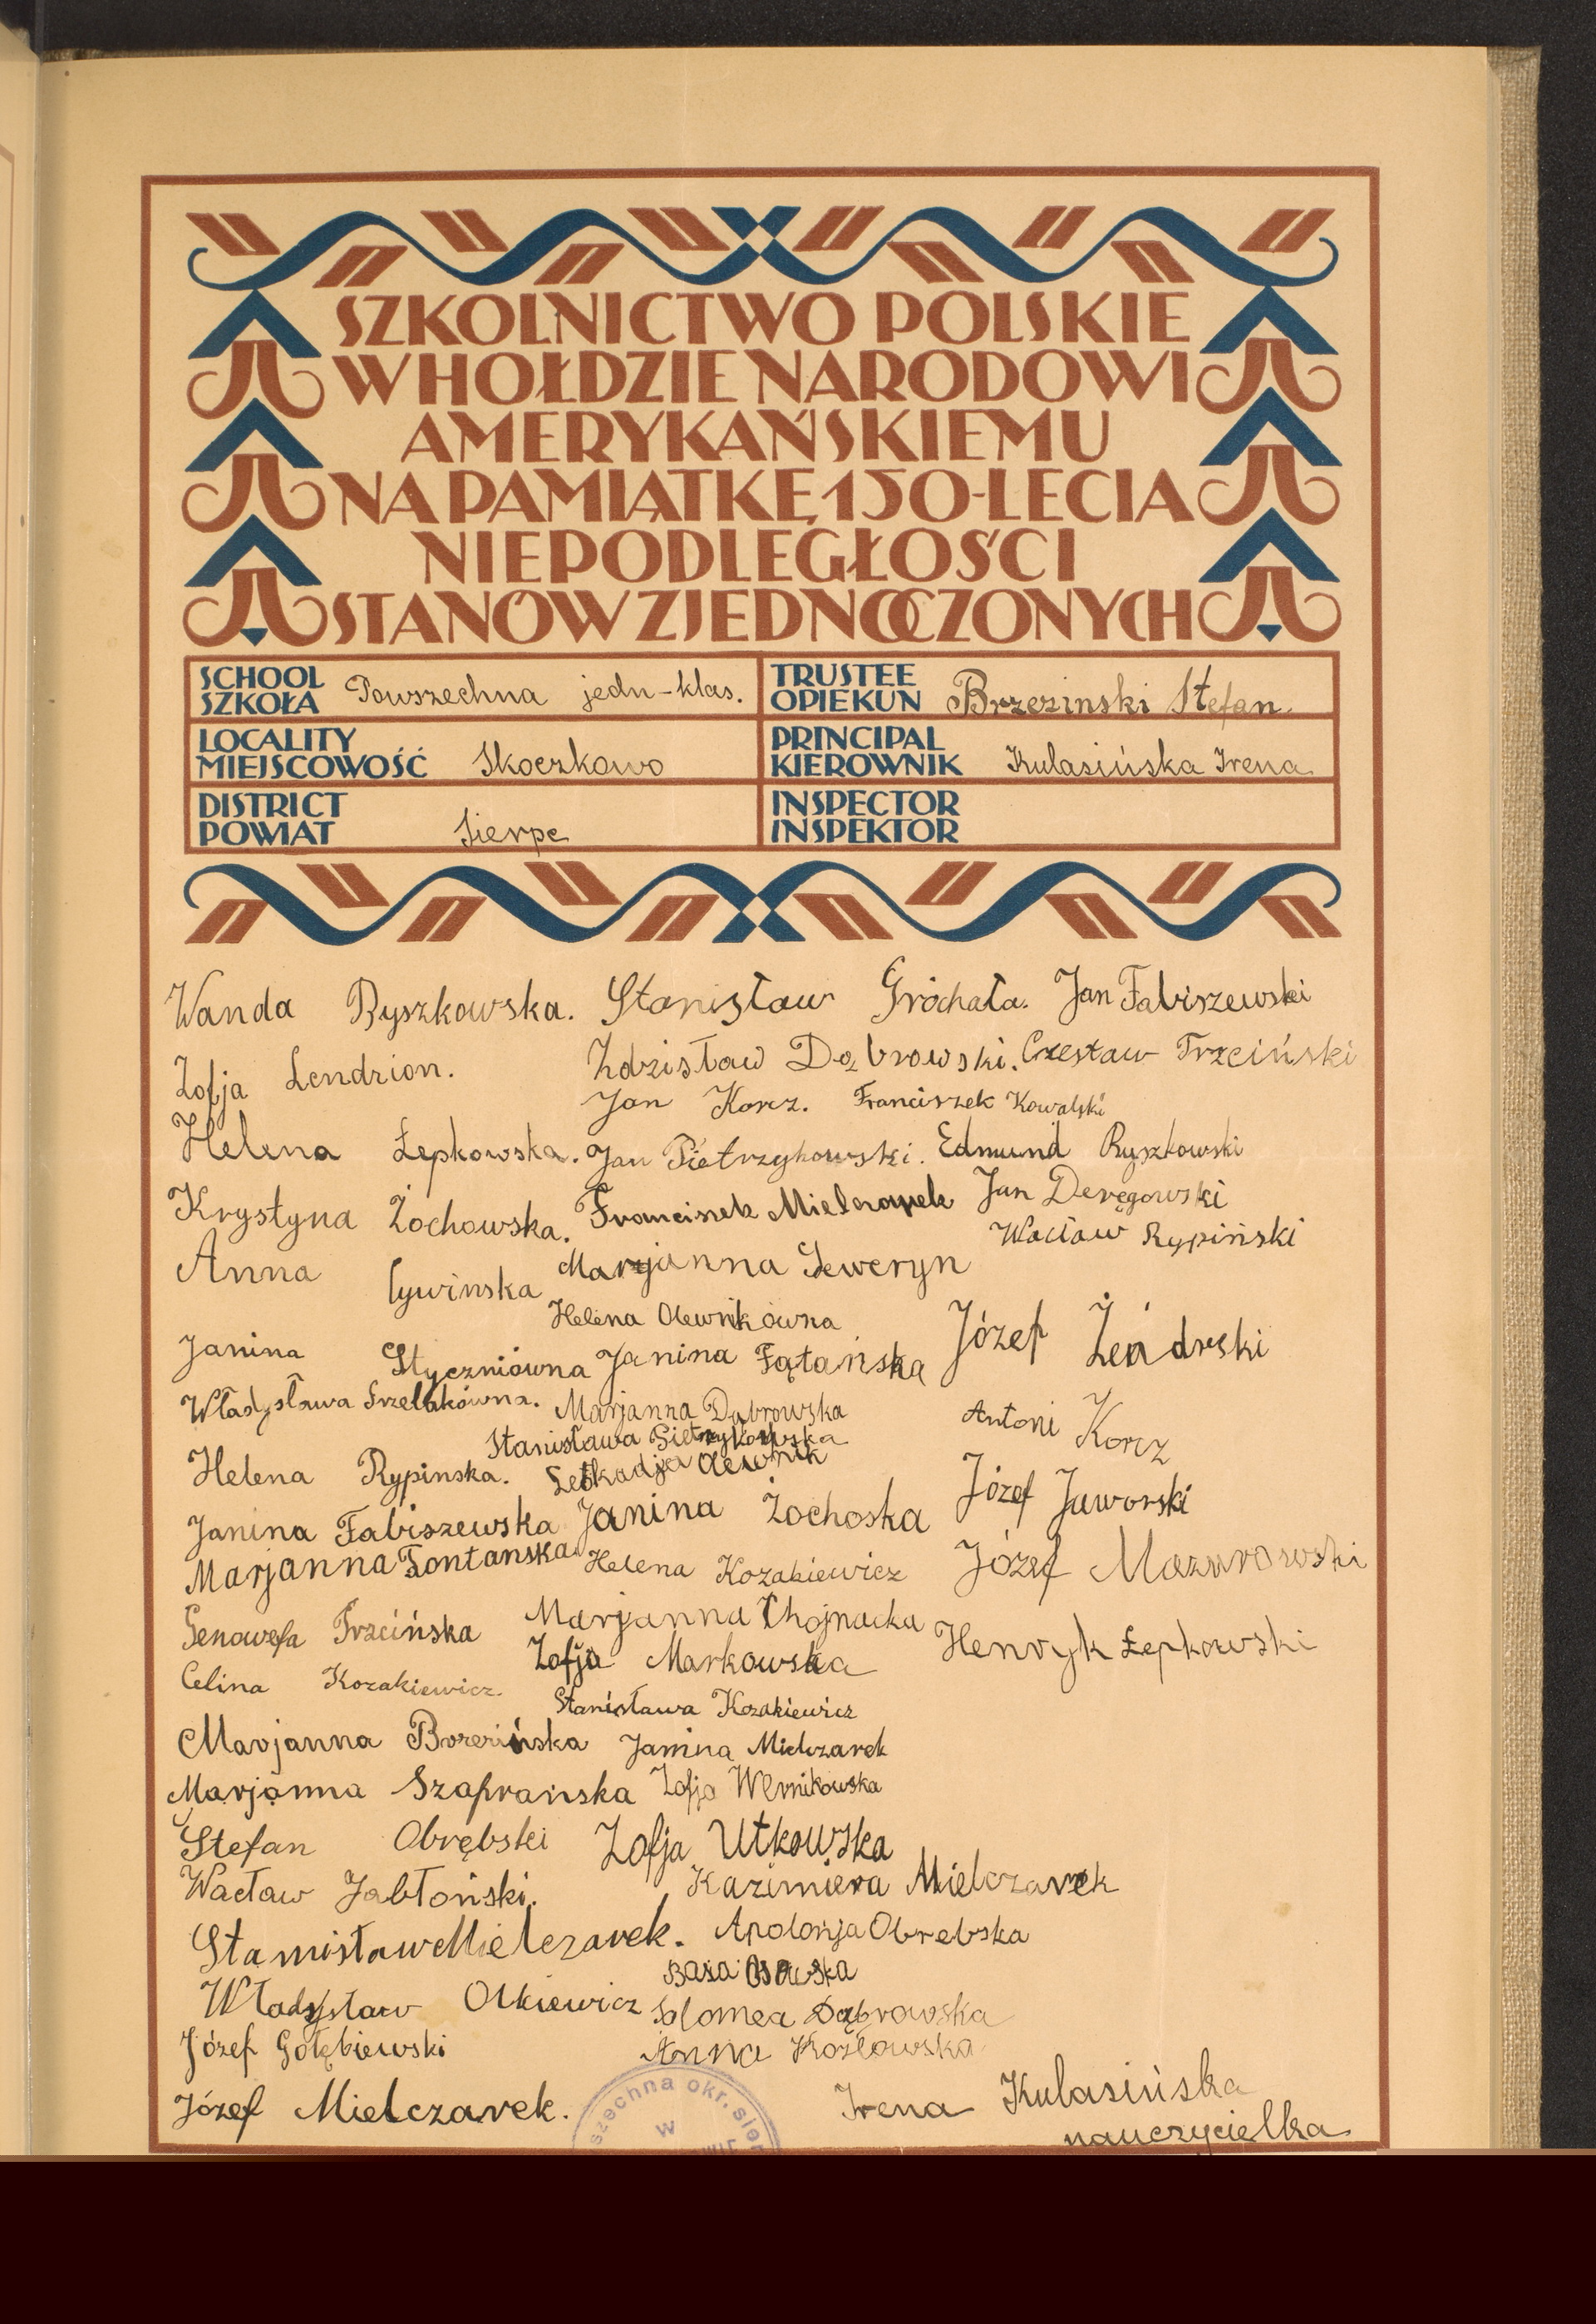 SZKOLNICTWO POLSKIE
W HOŁDZIE NARODOWI
AMERYKAŃSKIEMU
NA PAMIĄTKĘ 150-LECIA
NIEPODLEGŁOŚCI
STANÓW ZJEDNOCZONYCH
SCHOOL
SZKOŁA Powszechna jedn-klas.
TRUSTEE
OPIEKUN Brzezinski Stefan
LOCALITY
MIEJSCOWOŚĆ Skoczkowo
PRINCIPAL
KIEROWNIK Kulasińska Irena
DISTRICT
POWIAT Sierpc
INSPECTOR
INSPEKTOR
Wanda Ryszkowska. Stanisław Gróchała. Jan Fabiszewski
Zofja Lendzion. Zdzisław Dąbrowski. Czesław Trzciński
Jan Korcz. Franciszek Kowalski
Helena Łepkowska. Jan Pietrzykowski. Edmund Ryszkowski
Krystyna Żochowska. Franciszek Mielczarek Jan Deręgowski
Wacław Rypiński
Anna Cywinska Marjanna Seweryn
Helena Olewnikówna
Janina Styczniówna Janina Fątańska Józef
Władysława Marjanna Dąbrowska Antoni Korcz
Stanisława Pietrzykowska
Helena Rypinska. Leokadja Olewnik Józef Jaworski
Janina Fabiszewska Janina Żochoska
Marjanna Fontanska Helena Kozakiewicz Józef Mazurowski
Genowefa Trzcińska Marjanna Chojnacka Henryk Łepkowski
Zofja Markowska
Celina Kozakiewicz. Stanisława Kozakiewicz
Marjanna Brzezińska Janina Mielczarek
Marjanna Szafrańska Zofja Wernikowska
Stefan Obrębski Zofja Utkowska
Wacław Jabłoński. Kazimiera Mielczarek
Stanisław Mielczarek. Apolonja Obrebska
Osowska
Władysław Olkiewicz Solomea Dąbrowska
Józef Gołębiewski Anna Kozłowska
Józef Mielczarek. Irena Kulasińska
nauczycielka
szechna okr. sier
w